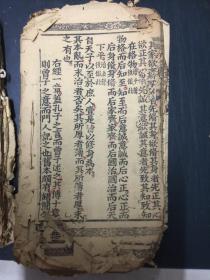 其家欲齊其家者先脩其身欲脩其身者先正其心
欲正其心者先誠其意欲誠其意者先致其知致知
在格物
物格而后知至知至而后意誠意誠而后心正心正而后
身脩身脩而后家齊家齊而后國治國治而后天
下平
自天子以至於庶人壹是皆以脩身為本
其本亂而末治者否矣其所厚者薄而其所薄者厚未
之有也
右經一章蓋孔子之言而曾子述之其傳十章
則曾子之意而門人記之也舊本頗有錯簡